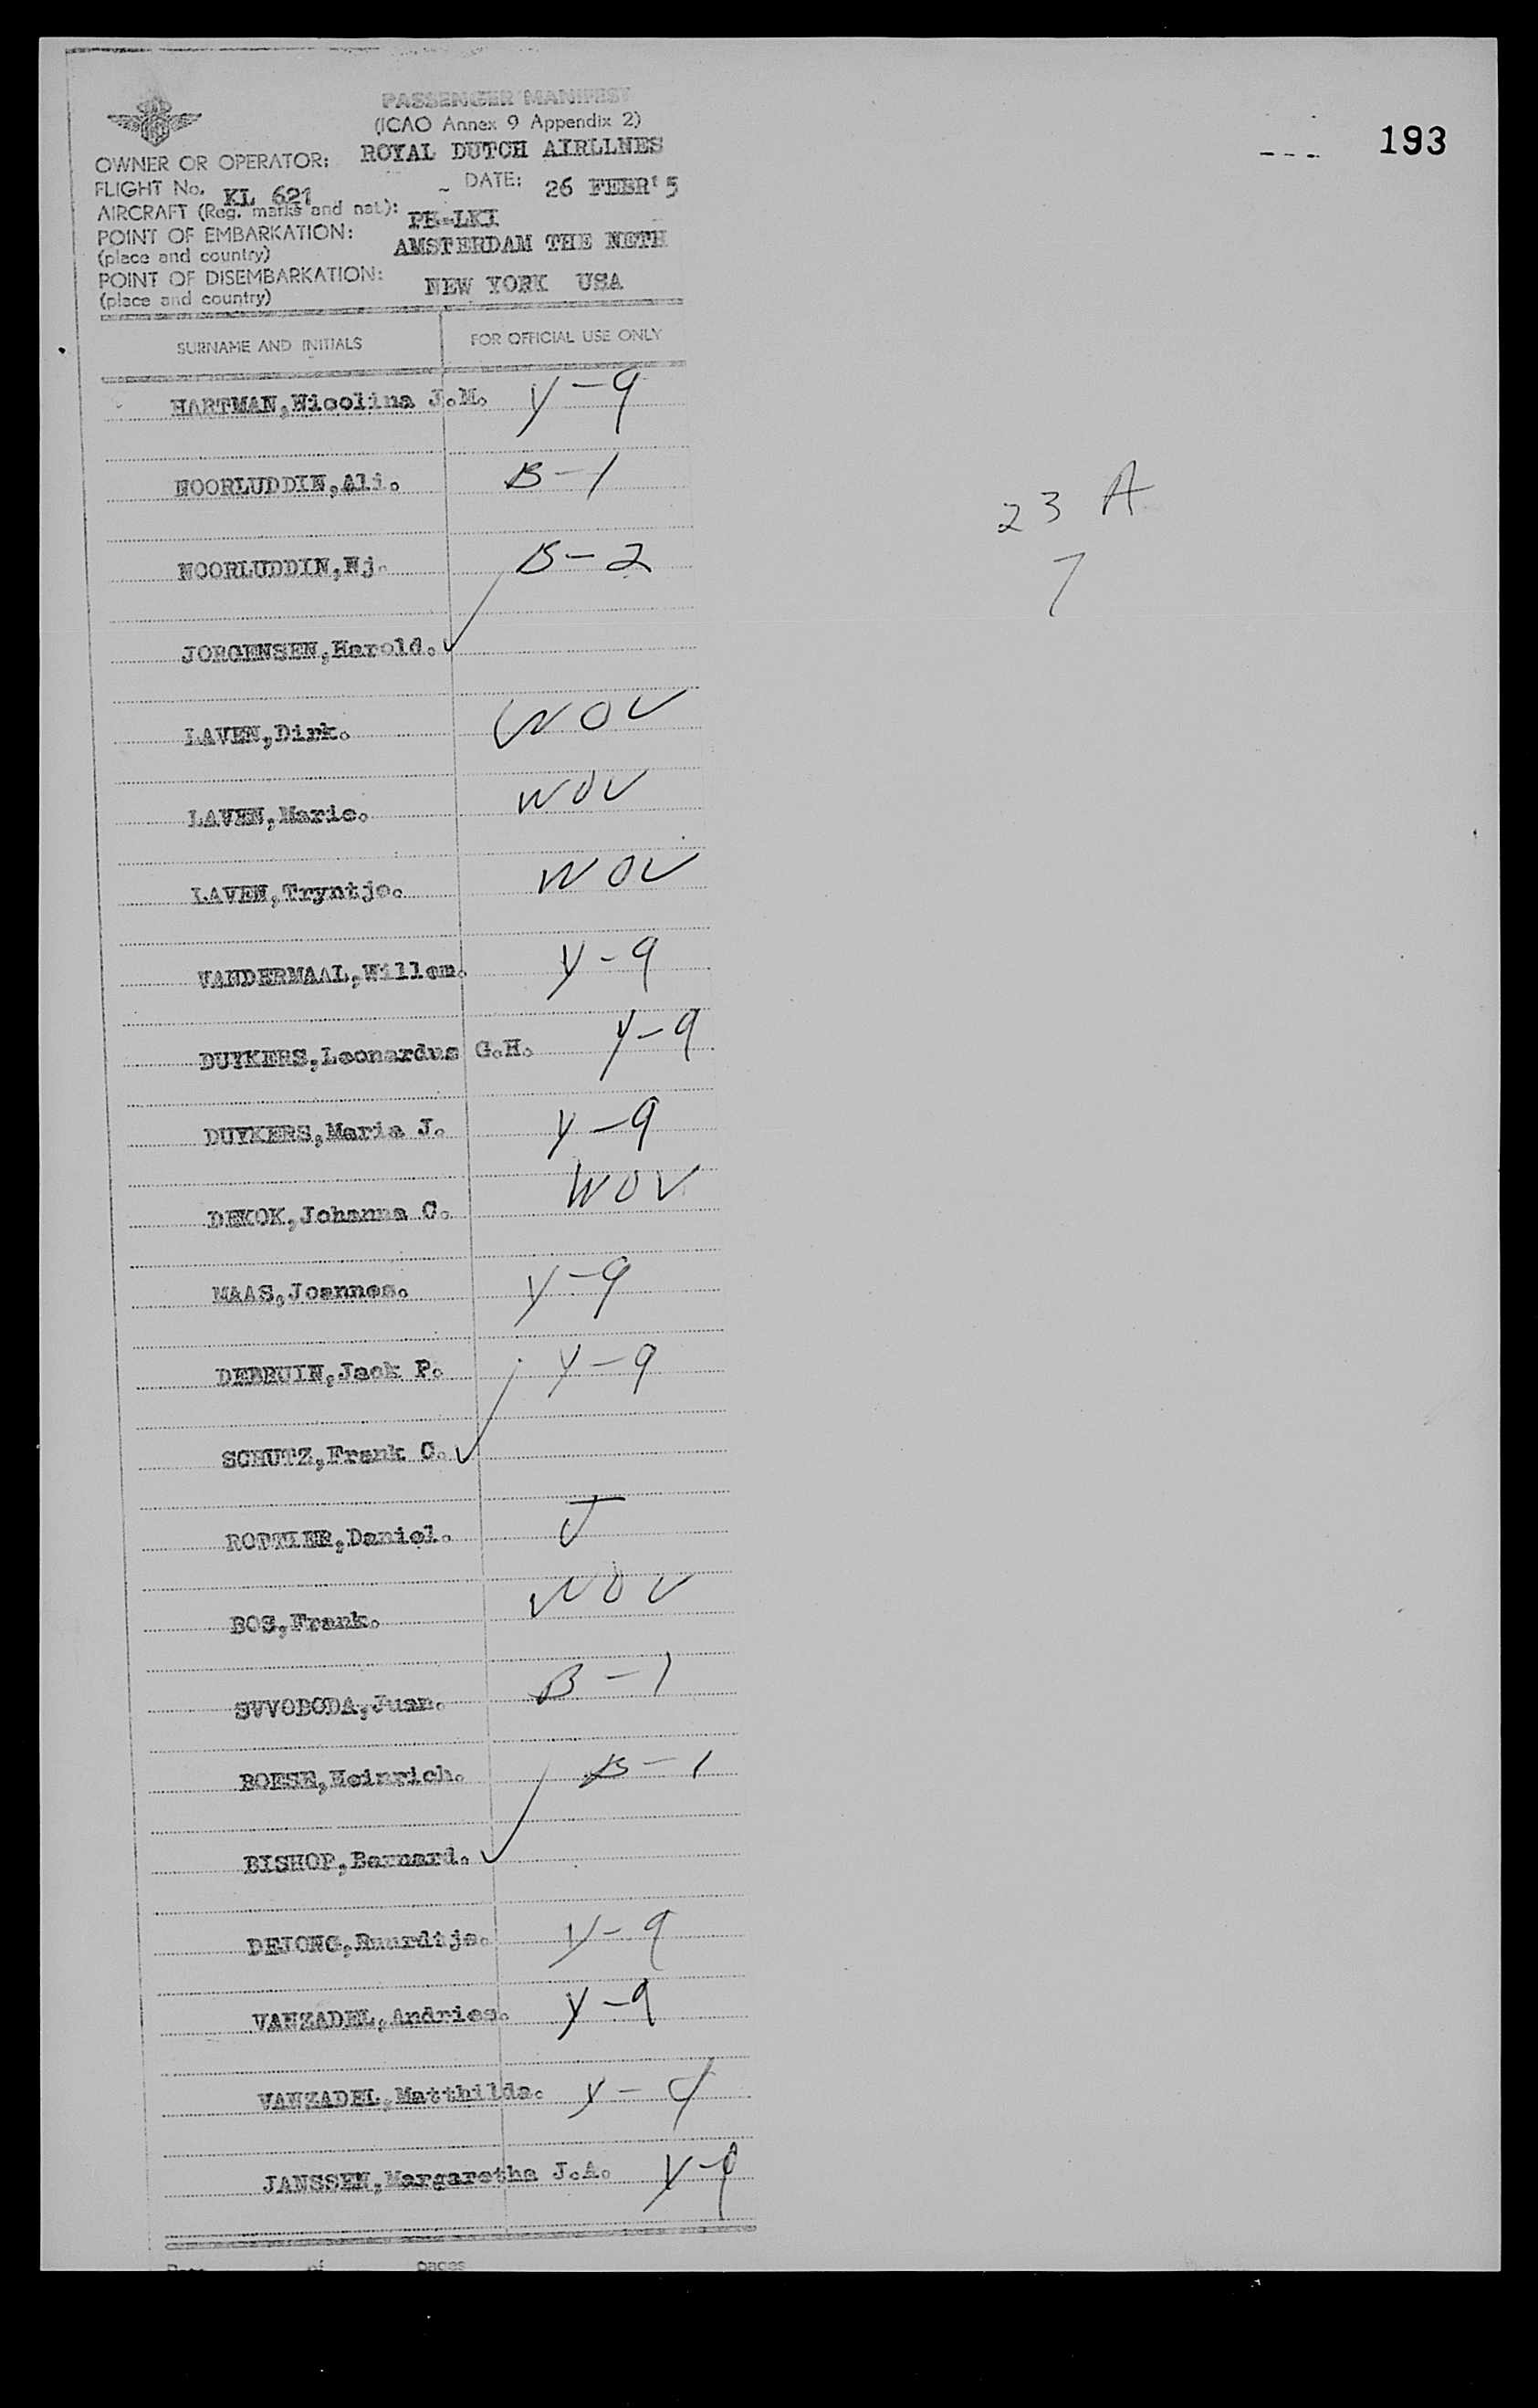 193
PASSENGER MANIFEST
(ICAO Annex 9 Appendix 2)
OWNER OR OPERATOR: ROYAL DUTCH AIRLLNES
FLIGHT No. KL 621 DATE: 26 FEBR' 5
AIRCRAFT (Reg. marks and nat.): PH-LKI
POINT OF EMBARKATION: AMSTERDAM THE NETH
(place and country)
POINT OF DISEMBARKATION: NEW YORK USA
(place and country)
SURNAME AND INITIALS FOR OFFICIAL USE ONLY
HARTMAN,Nicolina J.M. Y-9
NOORLUDDIN,Ali. B-1
23 A
NOORLUDDIN,Nj. B-2
7
JORGENSEN,Harold.
LAVEN,Dirk. WOV
LAVEN,Marie. WOV
LAVEN,Tryntje. WOV
VANDERMAAL,Willem. Y-9
DUYKERS,Leonardus G.H. Y-9
DUYKERS,Maria J. Y-9
DEKOK,Johanna C. WOV
MAAS,Joannes. Y-9
DEBRUIN,Jack P. Y-9
SCHUTZ,Frank C.
ROTTIER,Daniel. J
BOS,Frank. WOV
SVVOBODA,Juan. B-1
BOESE,Heinrich. B-1
BISHOP,Bernard.
DEJONG,Ruurdtje. Y-9
VANZADEL,Andries. Y-9
VANZADEL,Matthilda. Y-9
JANSSEN,Margaretha J.A. Y-9
pages